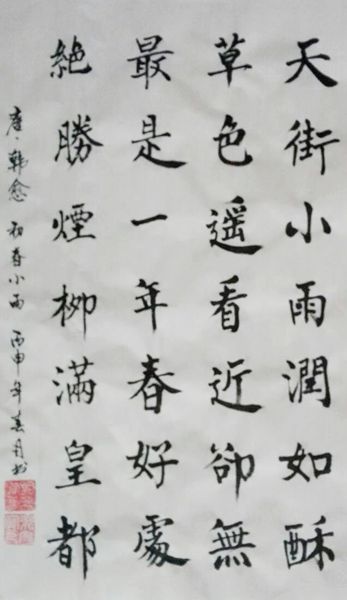 天街小雨潤如酥
草色遥看近卻無
最是一年春好處
絶勝煙柳滿皇都
唐·韩愈 初春小雨 丙申年春月